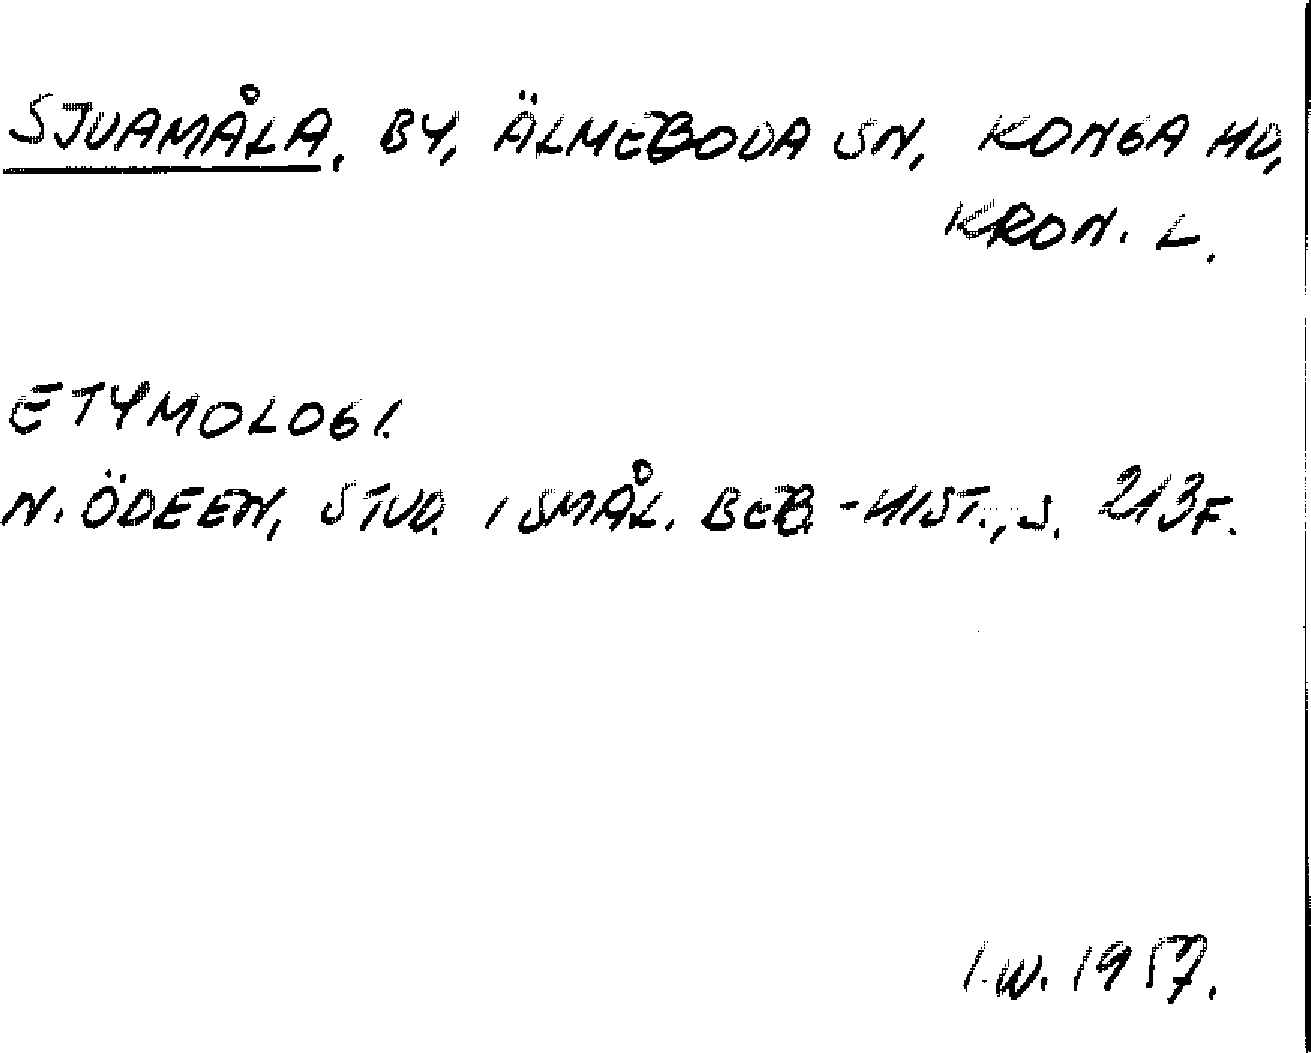 SJUAMÅLA, BY, ÄLMEBODA SN, KONGA HD,
KRON. L.
ETYMOLOGI.
N. ÖDEEN, STUD. I SMÅL. BEB.-HIST., S. 213 F.
I.W. 1957.